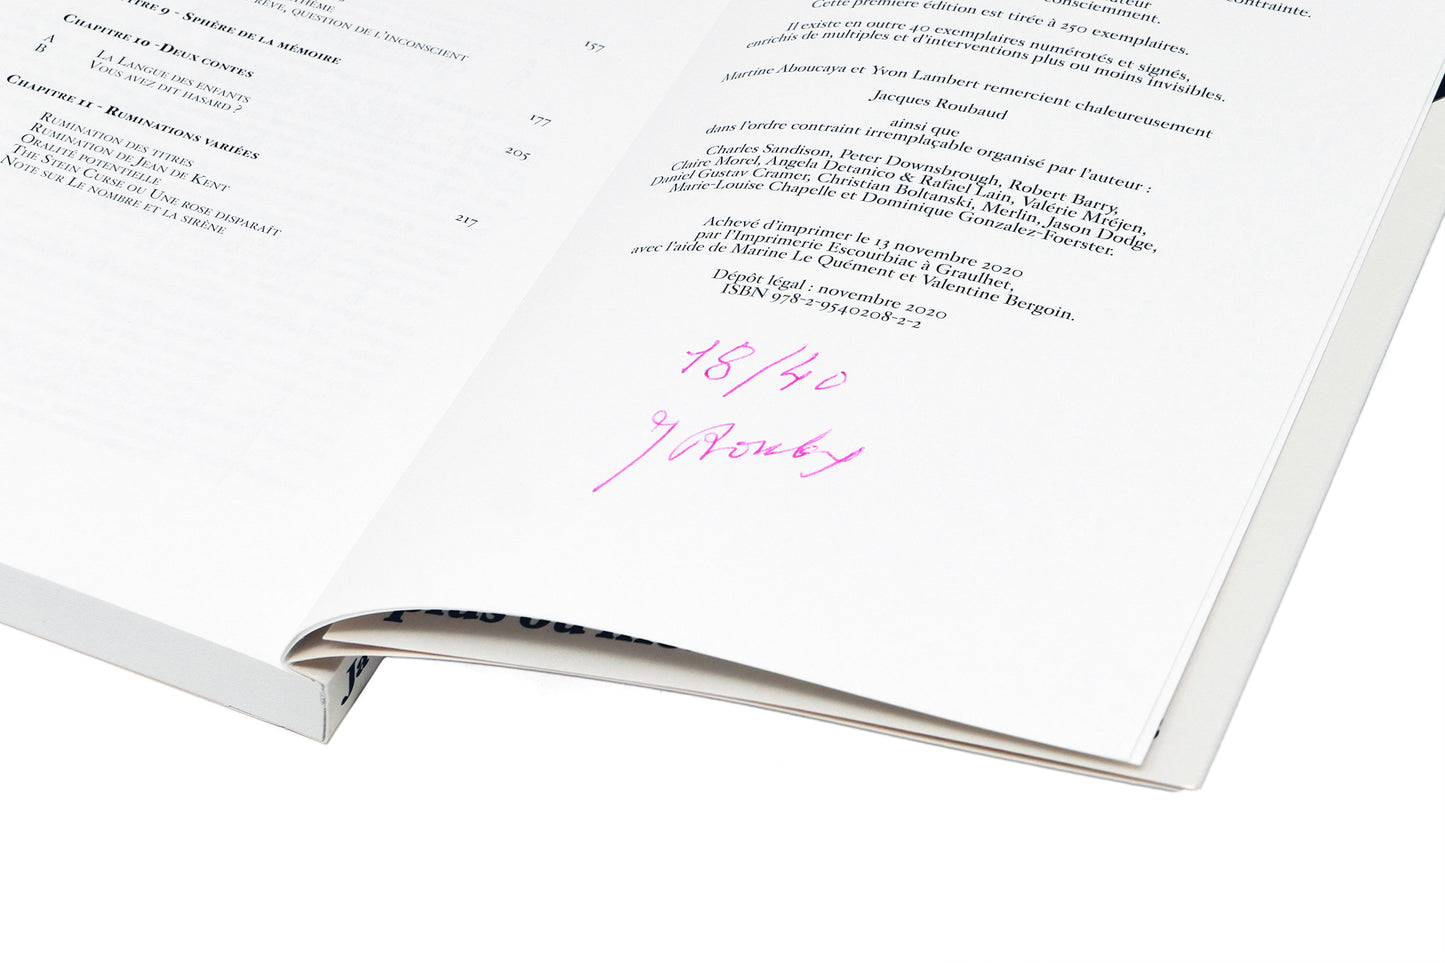 RÊVE, QUESTION DE L'INCONSCIENT
9 - Sphère de la mémoire
157
Chapitre 10 -Deux contes
A La Langue des enfants
B Vous avez dit hasard ?
177
Chapitre 11 - Ruminations variées
205
Rumination des titres
Rumination de Jean de Kent
Oralité potentielle
The Stein Curse ou Une rose disparaît
Note sur Le nombre et la sirène
217
contrainte.
Cette première édition est tirée à 250 exemplaires.
Il existe en outre 40 exemplaires numérotés et signés,
enrichis de multiples et d'interventions plus ou moins invisibles.
Martine Aboucaya et Yvon Lambert remercient chaleureusement
Jacques Roubaud
ainsi que
dans l'ordre contraint irremplaçable organisé par l'auteur :
Charles Sandison, Peter Downsbrough, Robert Barry,
Claire Morel, Angela Detanico & Rafael Lain, Valérie Mréjen,
Daniel Gustav Cramer, Christian Boltanski, Merlin, Jason Dodge,
Marie-Louise Chapelle et Dominique Gonzalez-Foerster.
Achevé d'imprimer le 13 novembre 2020
par l'Imprimerie Escourbiac à Graulhet,
avec l'aide de Marine Le Quément et Valentine Bergoin.
Dépôt légal : novembre 2020
ISBN 978-2-9540208-2-2
18/40
plus ou